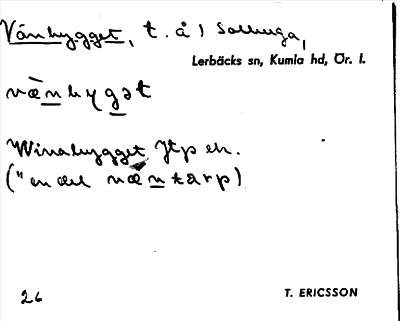 Vänhygget, t. å 1 Solberga,
Lerbäcks sn, Kumla hd, Ör. l.
væ̀nhygət
Winahygget Jtp ek.
(" en del væntarp)
26 T. ERICSSON